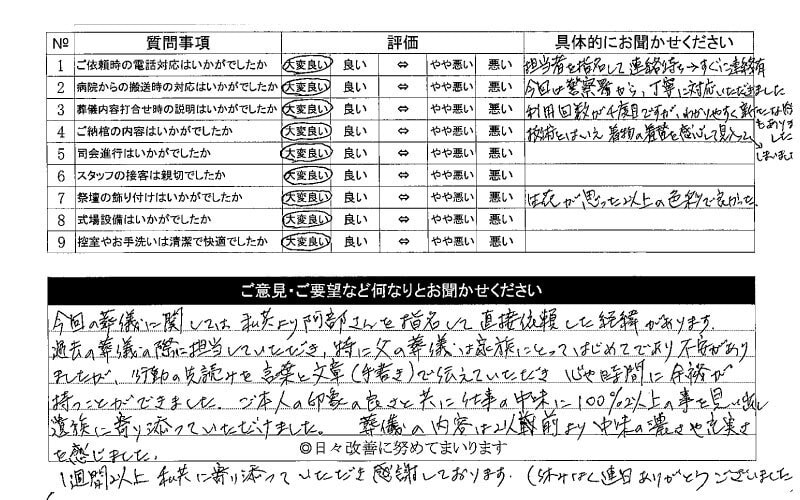 № 質問事項 評価 具体的にお聞かせください
1 ご依頼時の電話対応はいかがでしたか 大変良い 良い ⇔ やや悪い 悪い 担当者を指名して連絡待ち→すぐに連絡有
2 病院からの搬送時の対応はいかがでしたか 大変良い 良い ⇔ やや悪い 悪い 今回は警察署から、丁寧に対応いただきました
3 葬儀内容打合せ時の説明はいかがでしたか 大変良い 良い ⇔ やや悪い 悪い 利用回数が4度目ですが、わかりやすく新たな
4 ご納棺の内容はいかがでしたか 大変良い 良い ⇔ やや悪い 悪い 技術とはいえ 着物の着替を感心して見入って
もありました
しまいました
5 司会進行はいかがでしたか 大変良い 良い ⇔ やや悪い 悪い
6 スタッフの接客は親切でしたか 大変良い 良い ⇔ やや悪い 悪い
7 祭壇の飾り付けはいかがでしたか 大変良い 良い ⇔ やや悪い 悪い 生花が思った以上の色彩で良かった.
8 式場設備はいかがでしたか 大変良い 良い ⇔ やや悪い 悪い
9 控室やお手洗いは清潔で快適でしたか 大変良い 良い ⇔ やや悪い 悪い
ご意見・ご要望など何なりとお聞かせください
今回の葬儀に関しては 私共より阿部さんを指名して直接依頼した経緯があります.
過去の葬儀の際に担当していただき,特に父の葬儀は家族にとってはじめてであり不安があり
ましたが、行動の先読みを言葉と文章(手書き)で伝えていただき 心や時間に余裕が
持つことができました. ご本人の印象の良さと共に仕事の中味に100%以上の事を見い出し
遺族に寄り添っていただけました。 葬儀の内容は以前より中味の濃さや充実さ
を感じました.
◎日々改善に努めてまいります
1週間以上 私共に寄り添っていただき感謝しております. (休みなく連日ありがとうございました